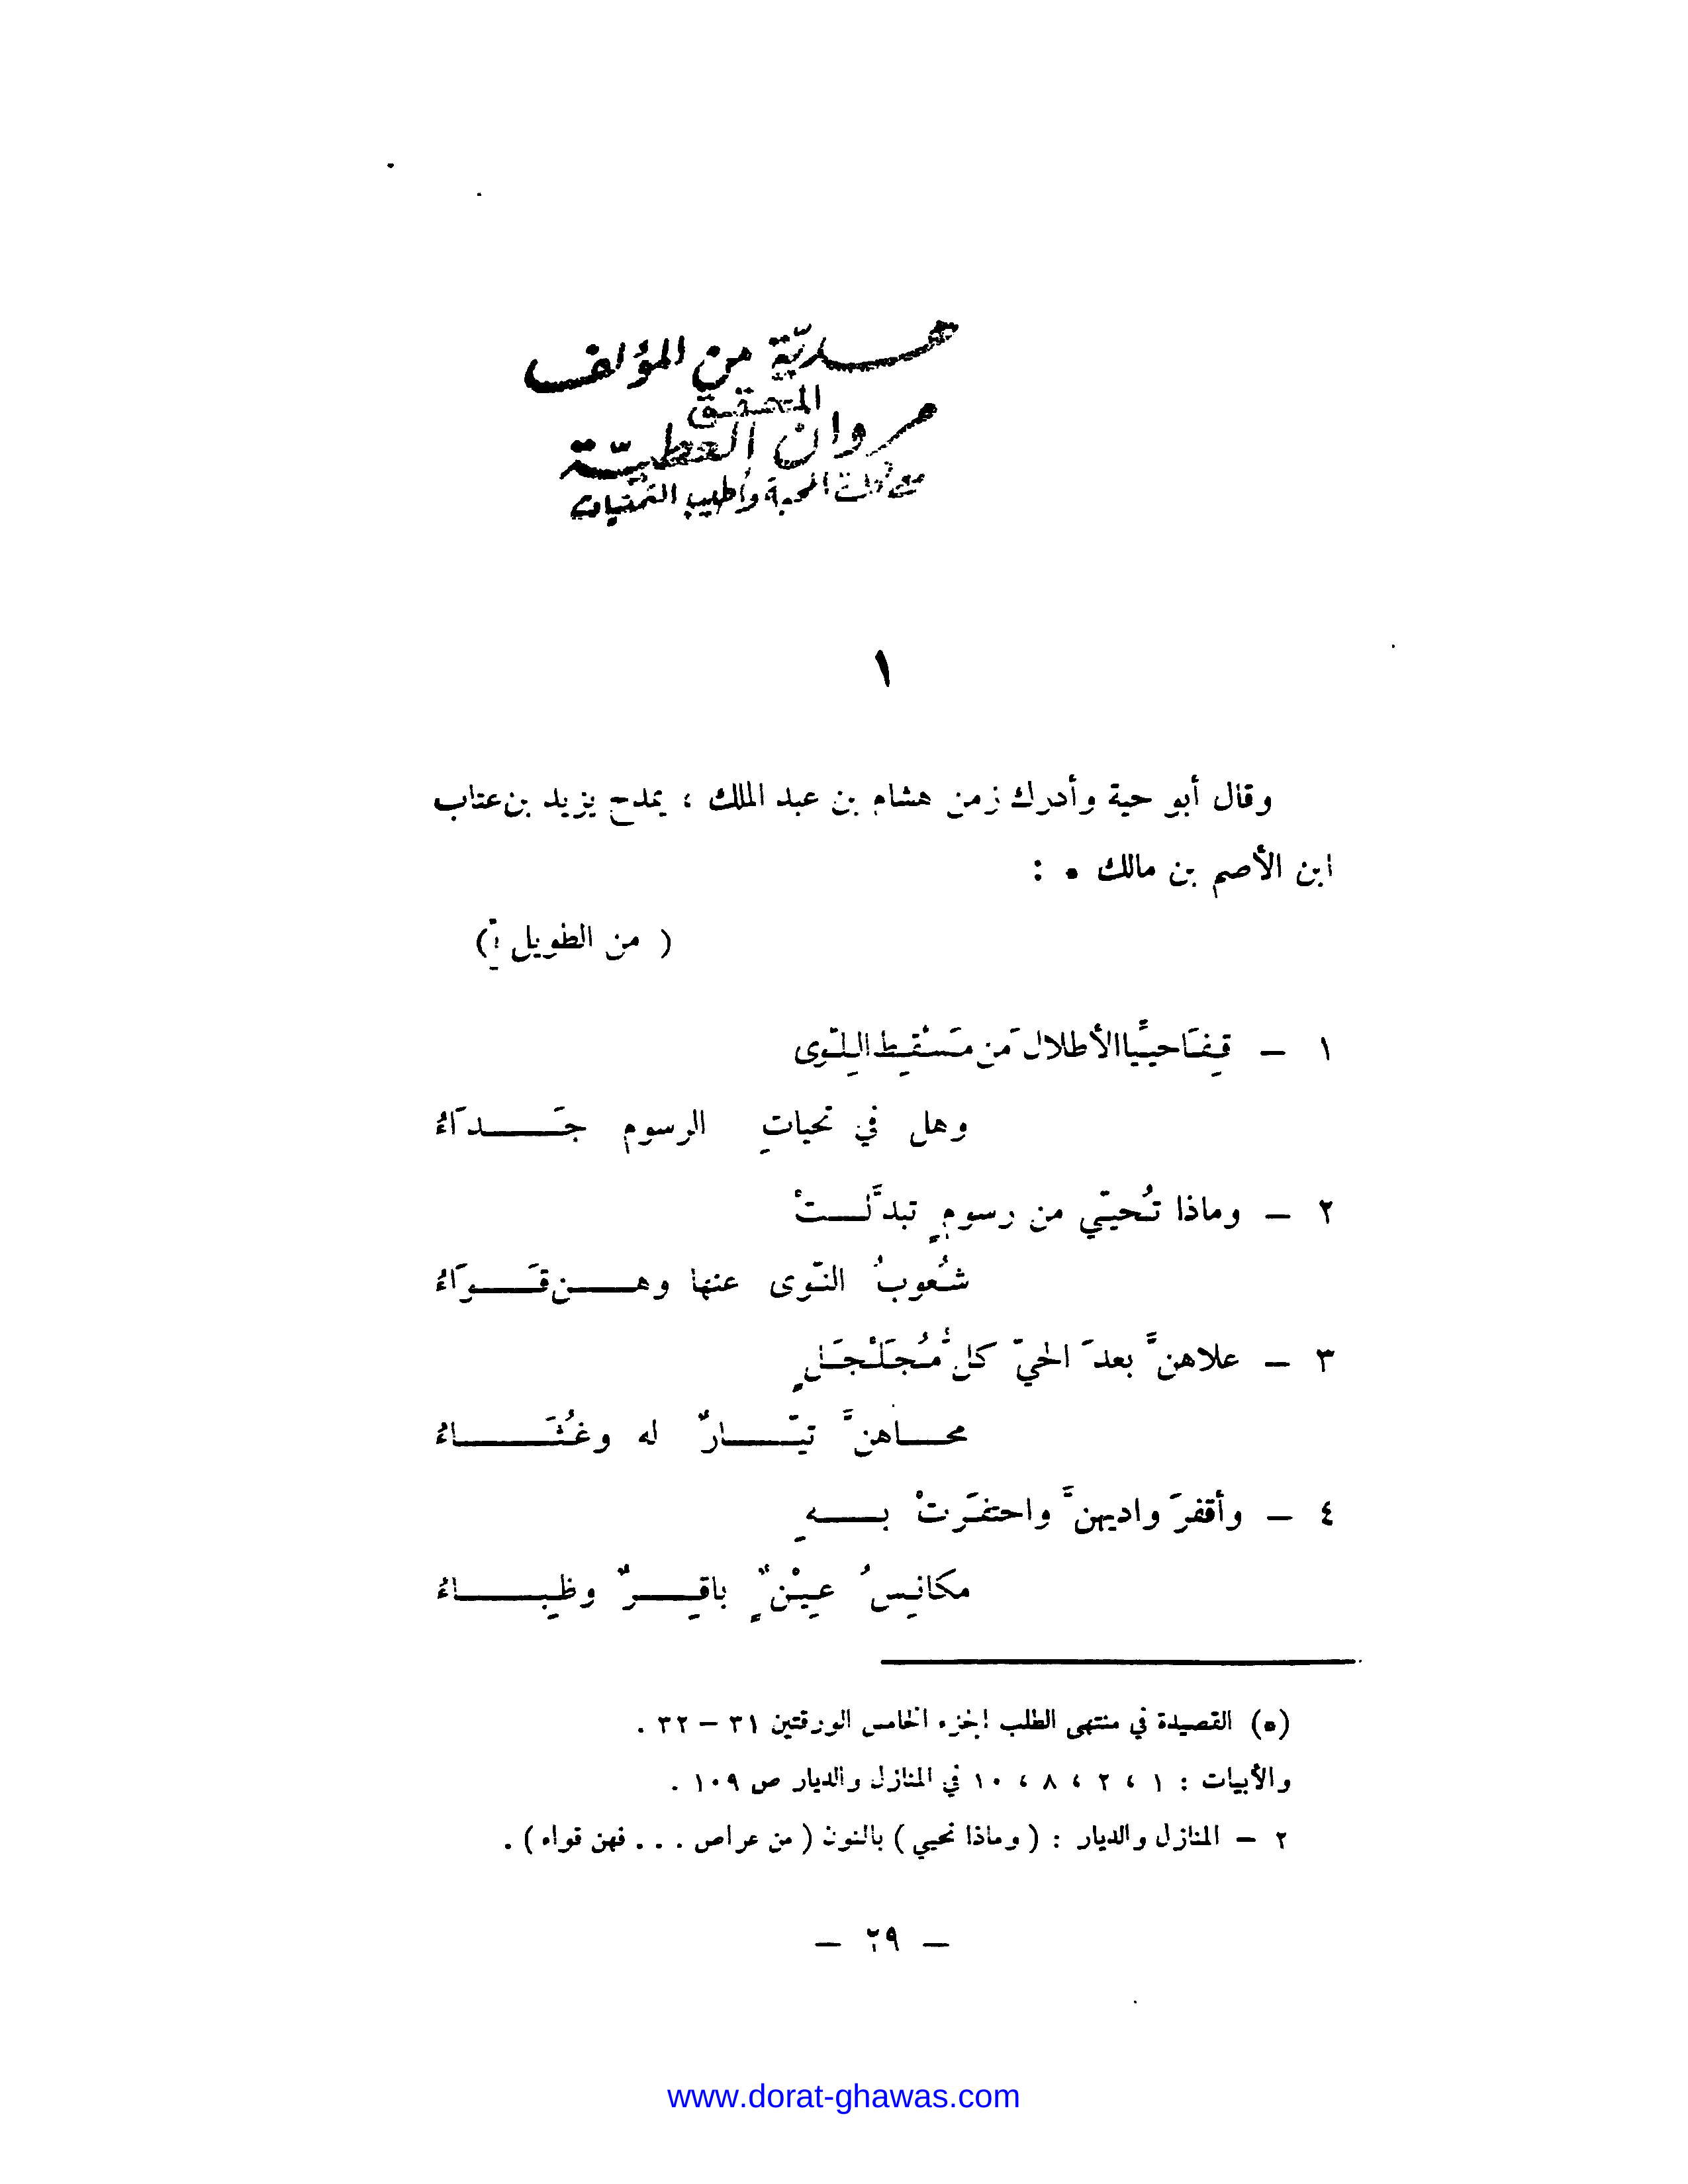 هديّة من المؤلف
المحقق
مروان العطيّة
مع المحبة وأطيب التمنيات
١
وقال أبو حية وأدرك زمن هشام بن عبد الملك ؛ يمدح يزيد بن عتاب
ابن الأصم بن مالك • :
( من الطويل )
١ – قِفَا حيِّيا الأطلالَ من مَسْقِطِ اللِّوى
وهل في تحياتِ الرسوم جَـــداءُ
٢ – وماذا تُحيّي من رسومٍ تبدَّلــتْ
شُعوبُ النّوى عنها وهــن قَــواءُ
٣ – علاهنَّ بعدَ الحيّ كلُّ مُجَلْجَلٍ
محــاهنَّ تيّــارٌ له وغُثَــاءُ
٤ – وأقفرَ واديهنَّ واحتفَرتْ بــهِ
مكانِسُ عِيْنٌ باقِــرٌ وظِبــاءُ
(•) القصيدة في منتهى الطلب الجزء الخامس الورقتين ٣١ – ٣٢ .
والأبيات : ١ ، ٢ ، ٨ ، ١٠ في المنازل والديار ص ١٠٩ .
٢ – المنازل والديار : ( وماذا نحيي ) بالنون ( من عراص . . . فهن قواء ) .
– ٢٩ –
www.dorat-ghawas.com